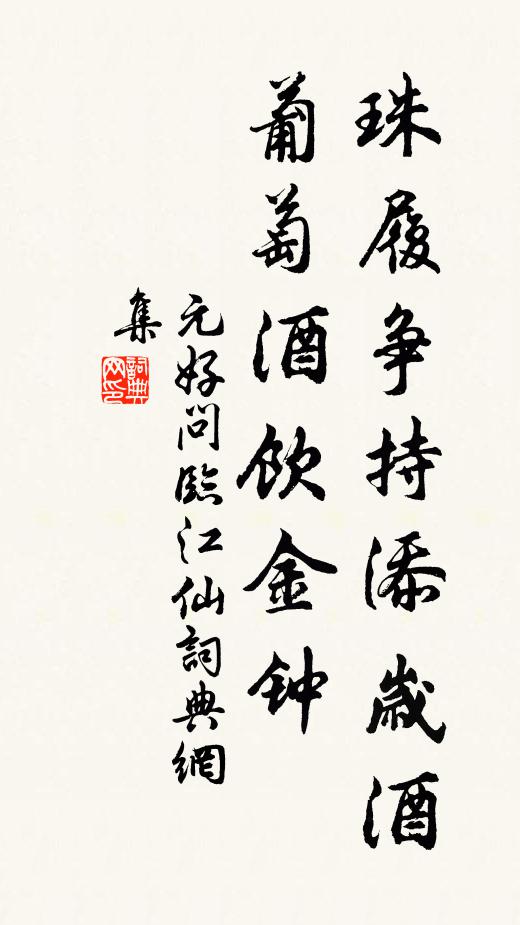 珠履争持添歲酒
葡萄酒饮金钟
元好問臨江仙詞典網
集
詞典
网印